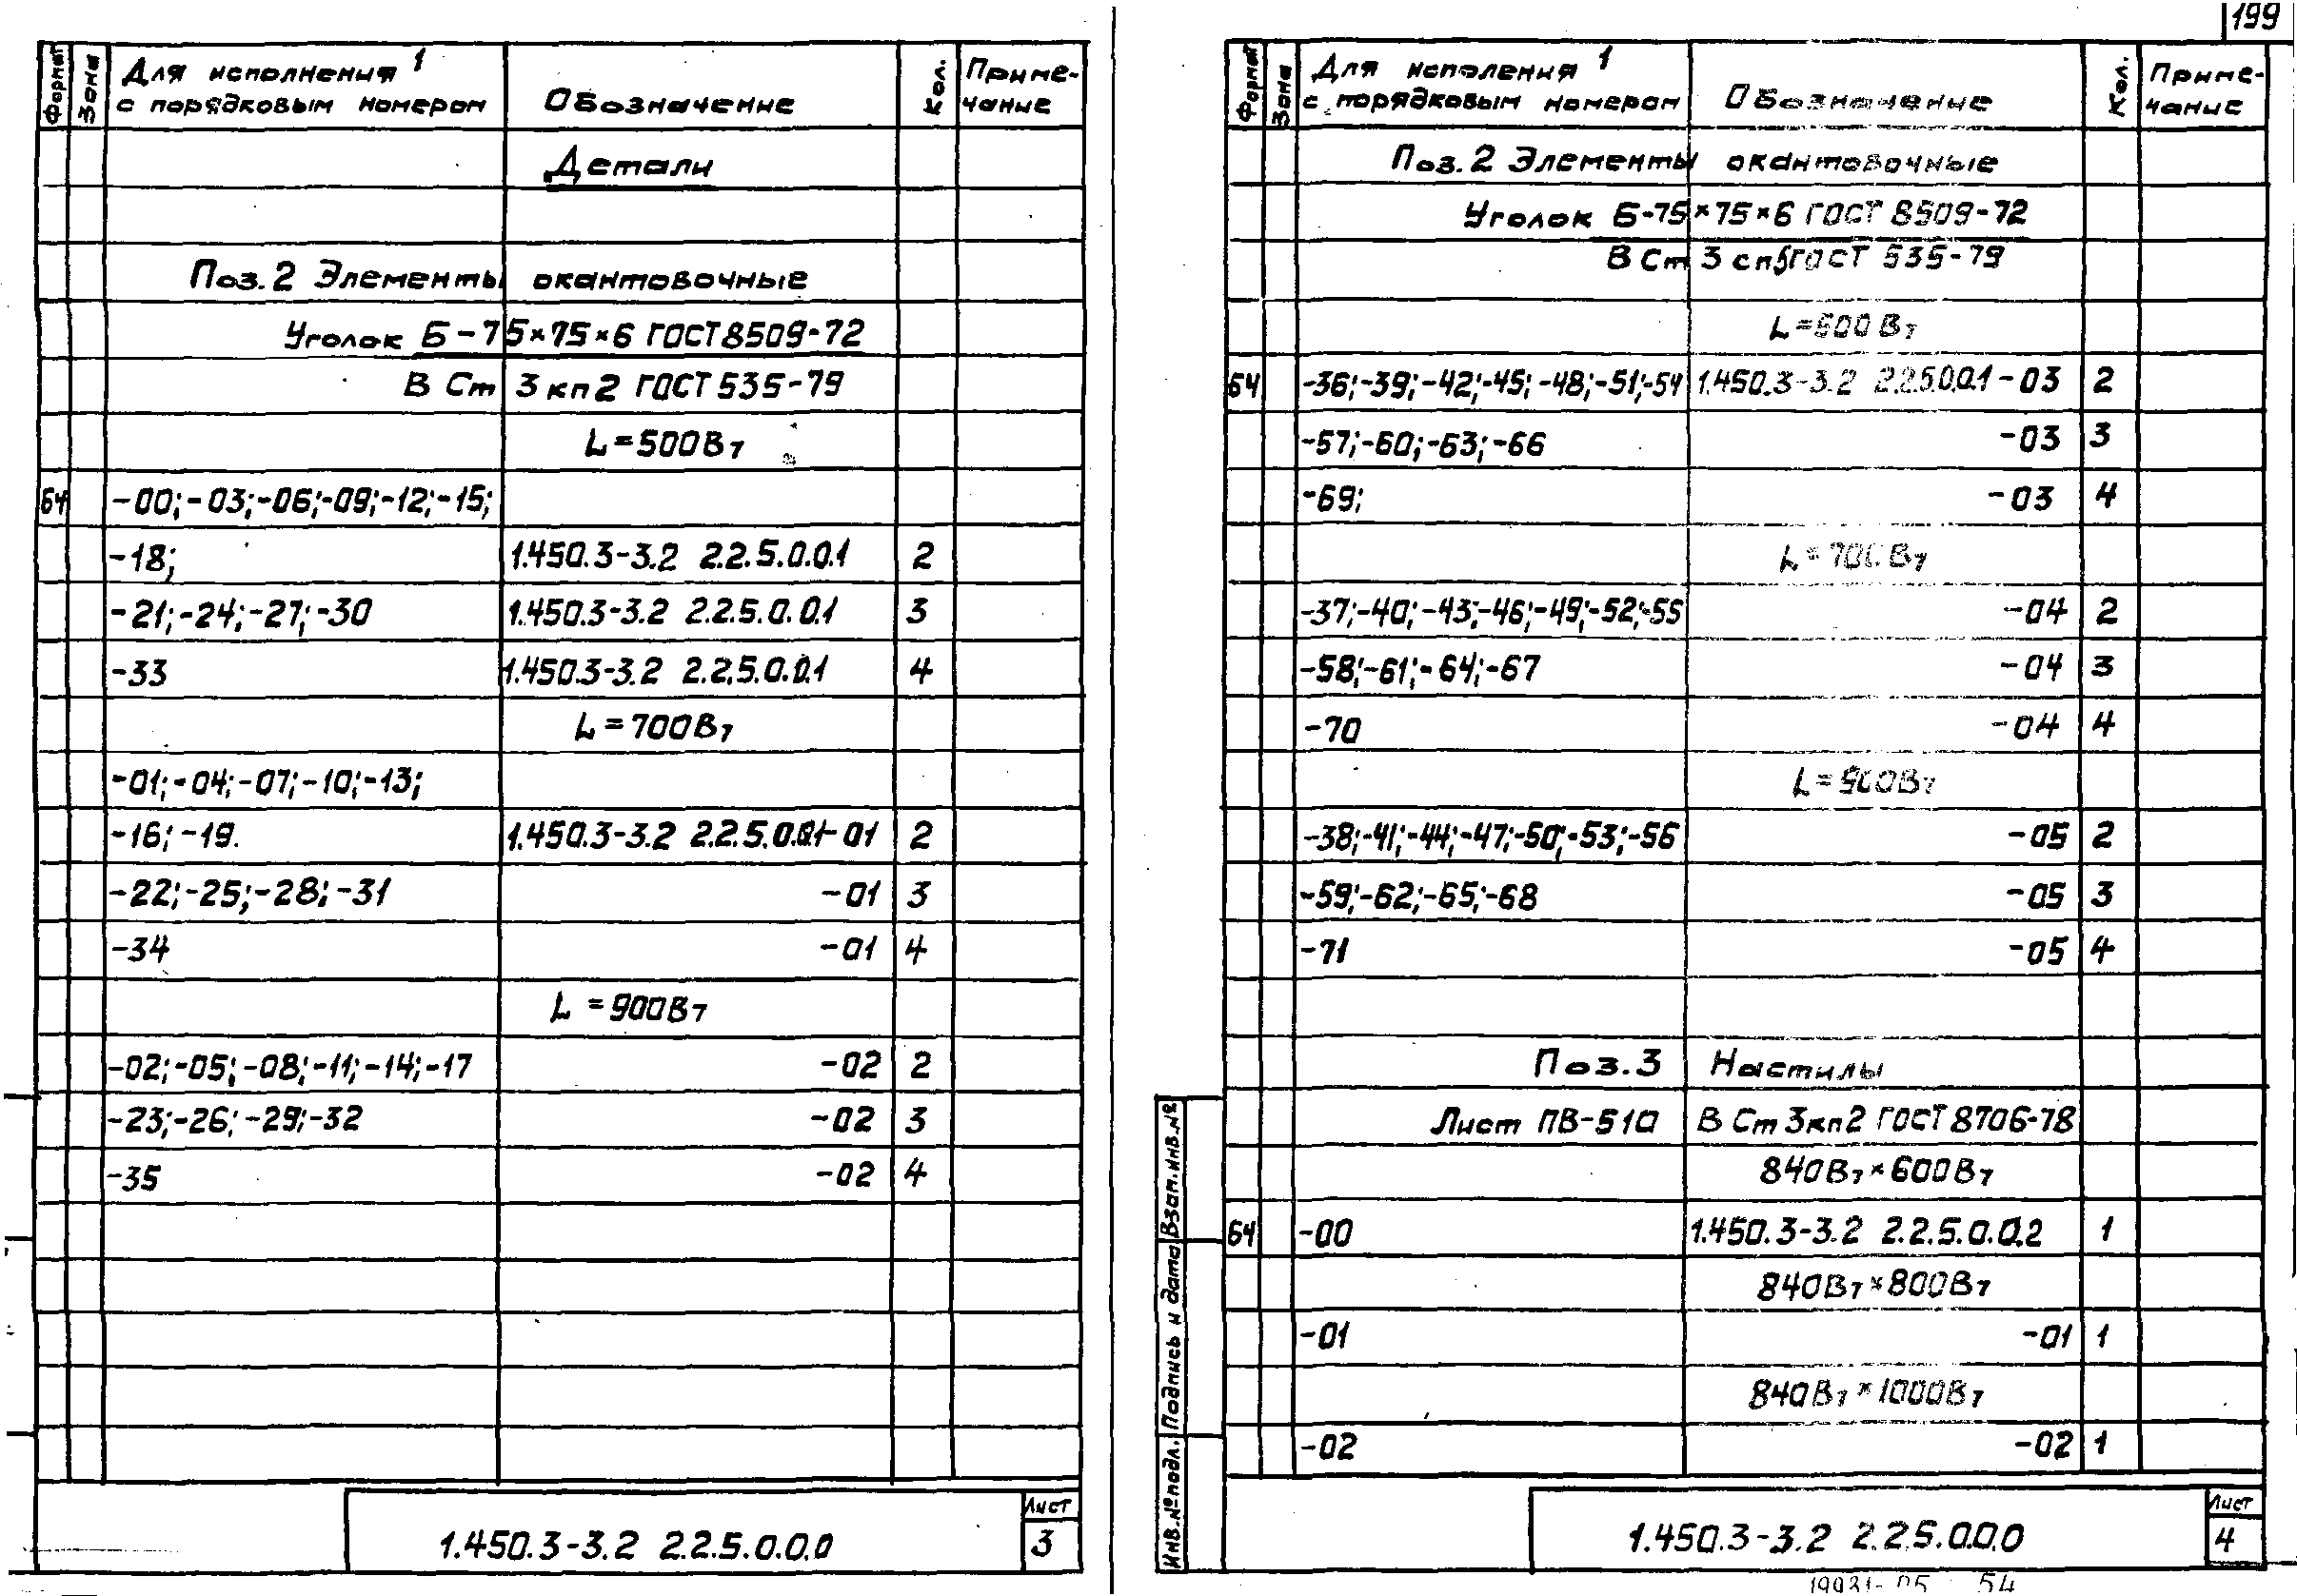 Формат Зона Для исполнения 1 с порядковым номером Обозначение Кол. Примечание
Детали
Поз.2 Элементы окантовочные
Уголок Б-75×75×6 ГОСТ 8509-72
В Ст 3 кп 2 ГОСТ 535-79
L=500В7
БЧ -00;-03;-06;-09;-12;-15;
-18; 1.450.3-3.2 2.2.5.0.0.1 2
-21;-24;-27;-30 1.450.3-3.2 2.2.5.0.0.1 3
-33 1.450.3-3.2 2.2.5.0.0.1 4
L=700В7
-01;-04;-07;-10;-13;
-16;-19. 1.450.3-3.2 2.2.5.0.0.1-01 2
-22;-25;-28;-31 -01 3
-34 -01 4
L=900В7
-02;-05;-08;-11;-14;-17 -02 2
-23;-26;-29;-32 -02 3
-35 -02 4
1.450.3-3.2 2.2.5.0.0.0
Лист
3
199
Формат Зона Для исполения 1 с порядковым номером Обозначение Кол. Примечание
Поз.2 Элементы окантовочные
Уголок Б-75×75×6 ГОСТ 8509-72
В Ст 3 сп5 ГОСТ 535-79
L=500В7
БЧ -36;-39;-42;-45;-48;-51;-54 1.450.3-3.2 2.2.5.0.0.1-03 2
-57;-60;-63;-66 -03 3
-69; -03 4
L=700В7
-37;-40;-43;-46;-49;-52;-55 -04 2
-58;-61;-64;-67 -04 3
-70 -04 4
L=900В7
-38;-41;-44;-47;-50;-53;-56 -05 2
-59;-62;-65;-68 -05 3
-71 -05 4
Поз.3 Настилы
Лист ПВ-510 В Ст 3кп2 ГОСТ 8706-78
840В7×600В7
БЧ -00 1.450.3-3.2 2.2.5.0.0.2 1
840В7×800В7
-01 -01 1
840В7×1000В7
-02 -02 1
Инв.№ подл. Подпись и дата Взам.инв.№
1.450.3-3.2 2.2.5.0.0.0
Лист
4
19931-05 54